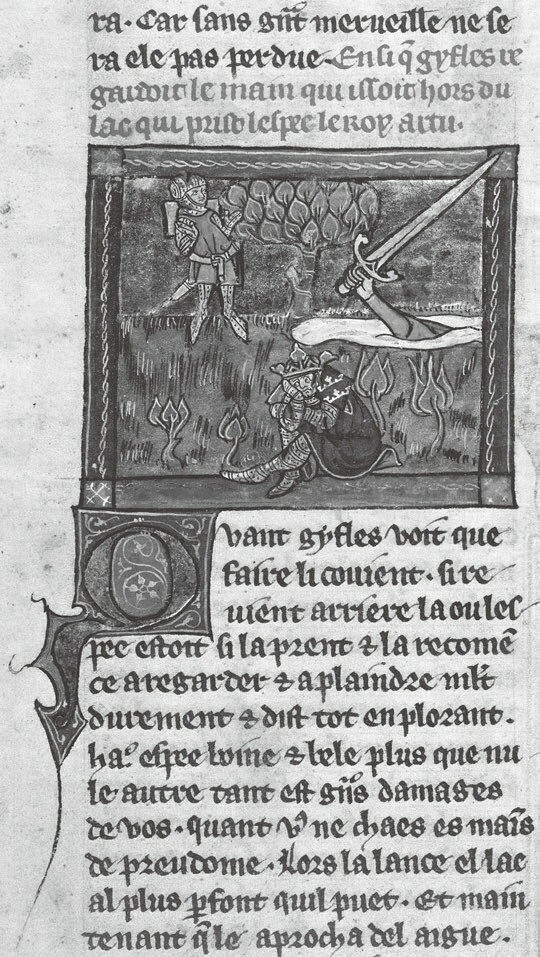 ra. Car sans gñt merueille ne se
ra ele pas perdue. Ensi q̃ gyfles re
gardoit le main qui issoit hors du
lac qui prist lespee le roy artu.
Quant gyfles voit que
faire li couient. si re
uient arriere la ou les
pee estoit si la prent & la recomẽ
ce a regarder & a plaindre ml̃t
durement & dist tot en plorant.
ha. espee boine & bele plus que nu
le autre tant est gñs damages
de vos. quant v9 ne chaes es mais
de preudome. Lors la lance el lac
al plus ꝑfont quil puet. Et main
tenant q̃ le aprocha del aigue.